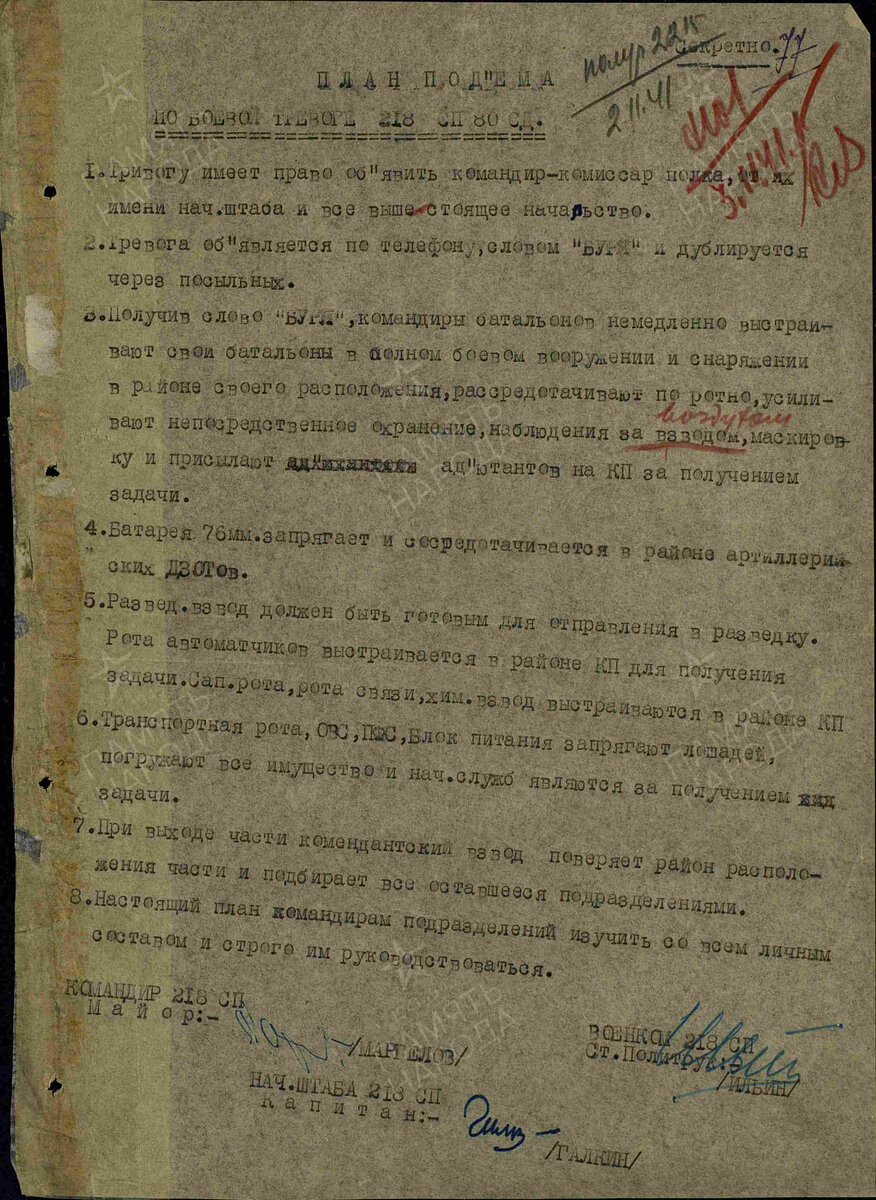 Секретно. 77
получ 22 15
2.11.41
3.11.41.
ПЛАН ПОД"ЕМА
ПО БОЕВОЙ ТРЕВОГЕ 218 СП 80 СД.
1.Тривогу имеет право об"явить командир-комиссар полка, от их
имени нач.штаба и все выше-стоящее начальство.
2.Тревога об"является по телефону,словом "БУРЯ" и дублируется
через посыльных.
3.Получив слово "БУРЯ",командиры батальонов немедленно выстраи-
вают свои батальоны в полном боевом вооружении и снаряжении
в районе своего расположения,рассредотачивают по ротно,усили-
воздухом
вают непосредственное охранение,наблюдения за взводом,маскиров-
ку и присылают ад"ютантов на КП за получением
задачи.
4.Батарея 76мм.запрягает и сосредотачивается в районе артиллерий-
ских ДЗОТов.
5.Развед.взвод должен быть готовым для отправления в разведку.
Рота автоматчиков выстраивается в районе КП для получения
задачи.Сап.рота,рота связи,хим.взвод выстраиваются в районе КП
6.Транспортная рота,ОВС,ПФС,Блок питания запрягают лошадей,
погружают все имущество и нач.служб являются за получением
задачи.
7.При выходе части комендантский взвод поверяет район располо-
жения части и подбирает все оставшееся подразделениями.
8.Настоящий план командирам подразделений изучить со всем личным
составом и строго им руководствоваться.
КОМАНДИР 218 СП
Майор:-
/МАРГЕЛОВ/
ВОЕНКОМ 218 СП
Ст.Политрук:-
/ИЛЬИН/
НАЧ.ШТАБА 218 СП
Капитан:-
/ГАЛКИН/
ПАМЯТЬ НАРОДА